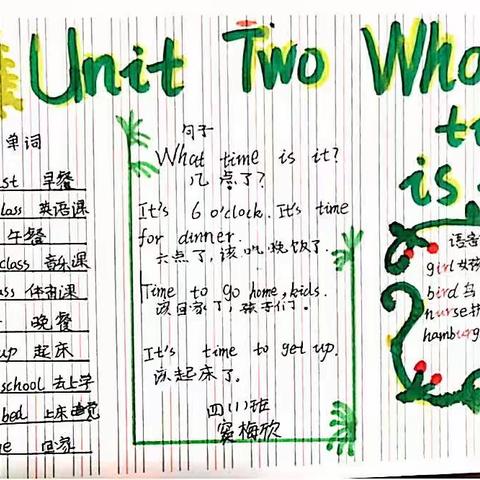 Unit Two Wha
ti
is
单词
st 早餐
lass 英语课
午餐
class 音乐课
ass 体育课
晚餐
up 起床
school 去上学
bed 上床睡觉
e 回家
句子
What time is it?
几点了?
It's 6 o'clock. It's time
for dinner.
六点了,该吃晚饭了.
Time to go home, kids.
该回家了,孩子们.
It's time to get up.
该起床了.
四(1)班
窦梅欣
语音
girl 女孩
bird 鸟
nurse 护
hamburg